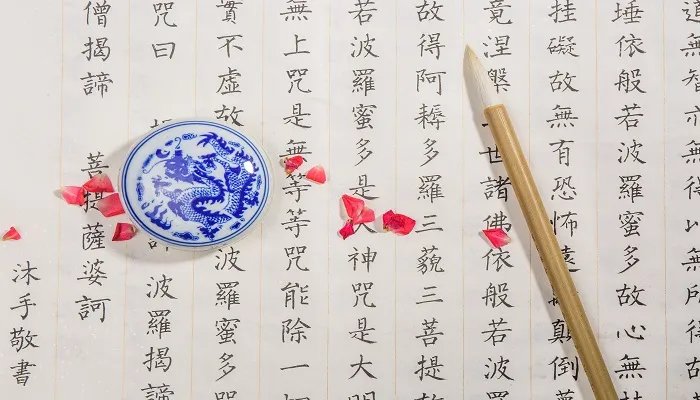 道無智亦無得以無所得故
埵依般若波羅蜜多故心無挂
挂礙故無有恐怖遠顛倒夢
竟涅槃世諸佛依般若波
故得阿耨多羅三藐三菩提故
若波羅蜜多是大神咒是大明
無上咒是無等等咒能除一
實不虛故波羅蜜多咒
咒曰波羅揭諦
僧揭諦菩提薩婆訶
沐手敬書